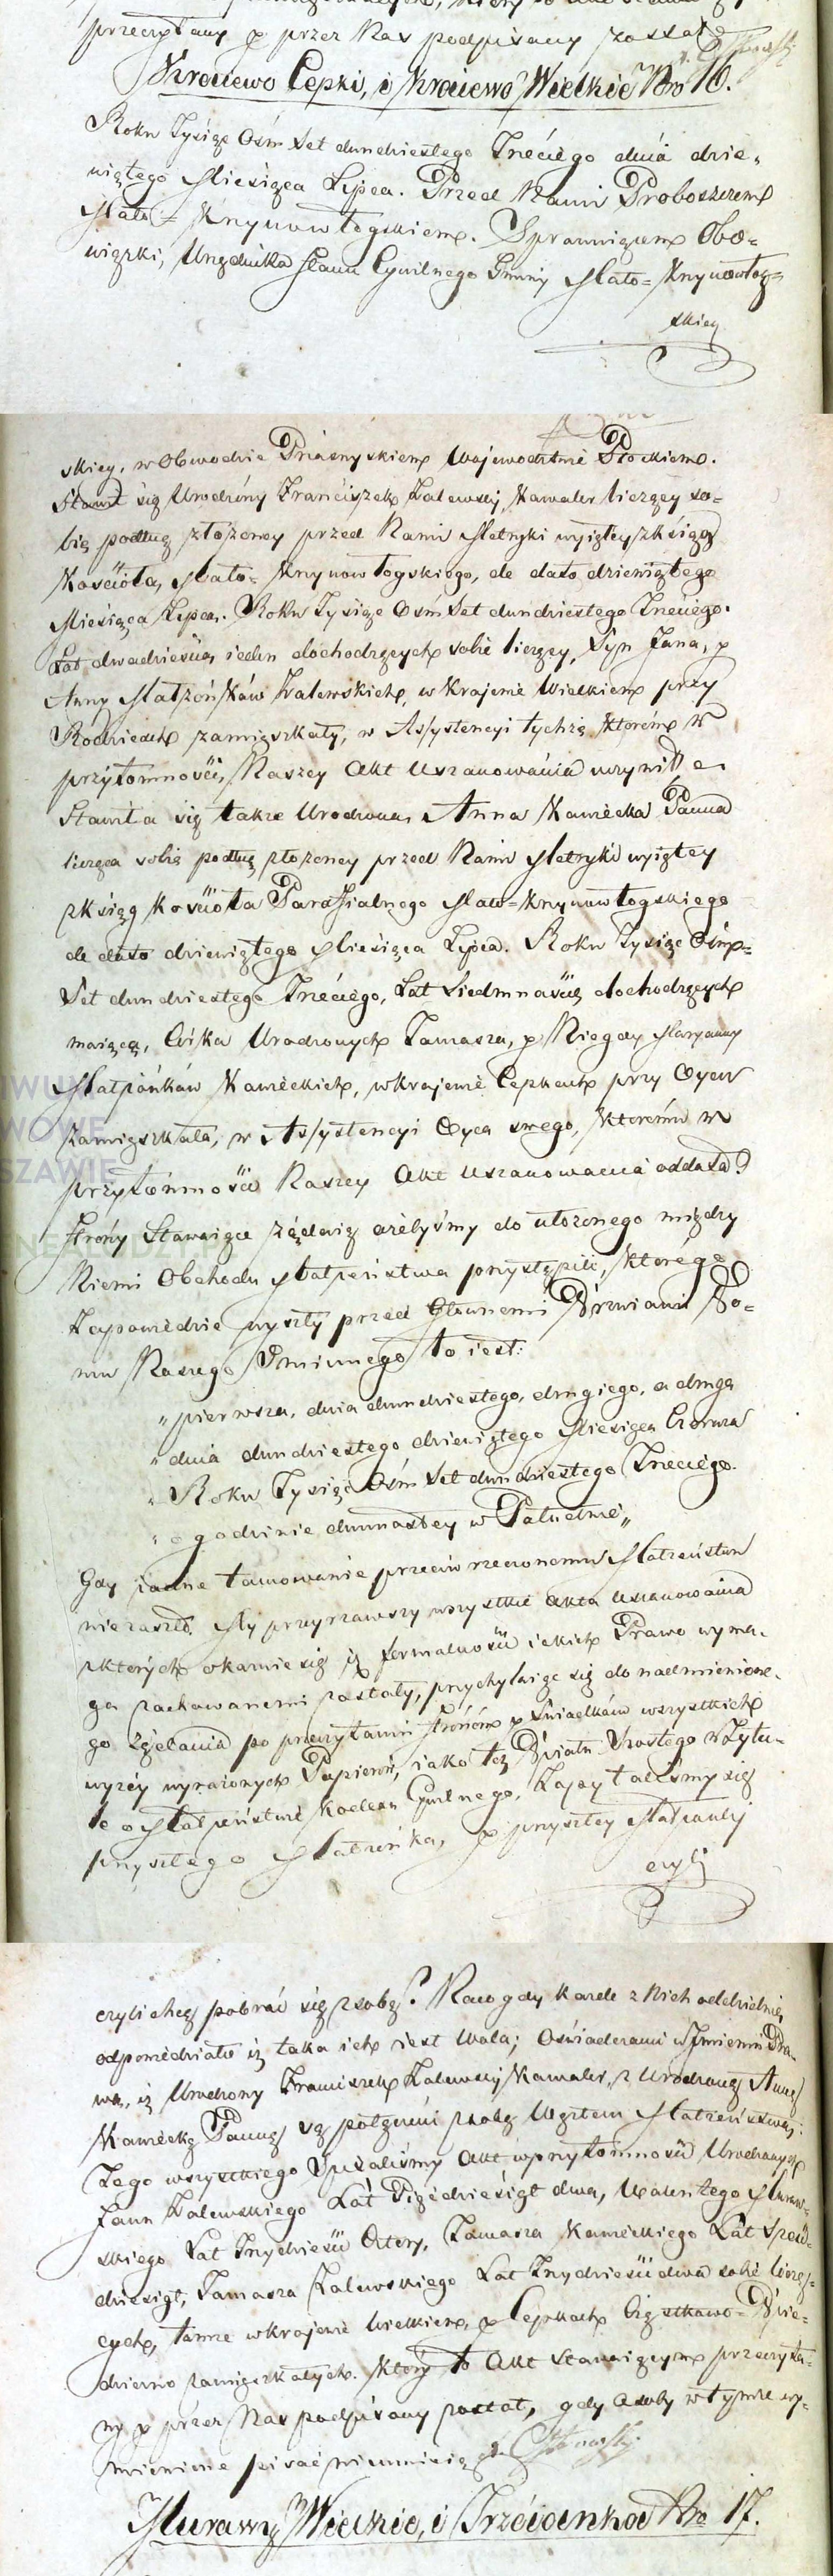 przeczytany y przez Nas podpisany został
Kraiewo Cepki, i Kraiewo Wielkie Nro 16.
Roku Tysiąc Ośm Set dwudziestego Trzeciego dnia dzie„
wiątego Miesiąca Lipca. Przed Nami Proboszczem
Mało = Krzynowłogskiem. Sprawuiącem Obo=
wiązki, Urzędnika Stanu Cywilnego Gminy Mało=Krzynowłog=
skiey
skiey, w Obwodzie Przasnyskiem Wojewodztwie Płockiem.
Stawił się Urodzony Franciszek Zalewski, Kawaler liczący so=
bie podług złożoney przed Nami Metryki wyiętey z ksiąg
Kościoła Mało= Krzynowłogskiego, de dato dziewiątego
Miesiąca Lipca. Roku Tysiąc Ośm Set dwudziestego Trzeciego.
Lat dwadzieścia ieden dochodzących sobie liczący, Syn Jana, y
Anny Małżonków Zalewskich, w Krajewie Wielkiem przy
Rodzicach zamieszkały, w Assystencyi tychże, którem w
przytomności, Naszey Akt uszanowania uczynił, a
Stawiła się także Urodzona Anna Kamieńska Panna
licząca sobie podług złożoney przed Nami Metryki wyiętey
z ksiąg Kościoła Parafialnego Mało=Krzynowłogskiego
de dato dziewiątego Miesiąca Lipca. Roku Tysiąc Ośm=
Set dwudziestego Trzeciego, Lat Siedmnaście dochodzących
maiąca, Córka Urodzonych Tomasza, y Niegdy Maryanny
Małżonków Kamieńskich, w Krajewie Cepkach przy Oycu
zamieszkała, w Assystencyi Oyca swego, któremu w
przytomności Naszey Akt uszanowania oddała.
Strony Stawaiące żądaią ażebyśmy do ułożonego między
Niemi Obchodu Małżeństwa przystąpili, którego
Zapowiedzie wyszły przed Głównemi Drzwiami Do=
mu Naszego Gminnego to iest:
„pierwsza, dnia dwudziestego, drugiego, a druga
„dnia dwudziestego dziewiątego Miesiąca Czerwca
„Roku Tysiąc Ośm Set dwudziestego Trzeciego.
„o godzinie dwunastey w Południe„
Gdy żadne tamowanie przeciw rzeczonemu Małżeństwu
nie zaszło. My przeyrzawszy wszystkie Akta uszanowania
z których okazuie się iż formalności iakich Prawo wyma„
ga zachowanemi zostały, przychylaiąc się do nadmienione„
go żądania po przeczytaniu Stronom y Świadkom wszystkich
wyżey wyrażonych Papierów, iako też Działu Szóstego w Tytu=
le o Małżeństwie Kodexu Cywilnego, Zapytaliśmy się
przyszłego Małżonka, y przyszłey Małżonki
czyli
czyli chcą pobrać się z sobą? Na co gdy każde z Nich oddzielnie
odpowiedziało iż taka ich iest Wola; Oświadczamy w Imieniu Pra„
wa, iż Urodzony Franciszek Zalewski Kawaler, z Urodzoną Anną
Kamieńską Panną są połączeni z sobą Węzłem Małżeństwa:
Tego wszystkiego Spisaliśmy Akt w przytomności Urodzonych
Jana Zalewskiego Lat Pięćdziesiąt dwa, Walentego Muraw=
skiego Lat Trzydzieści Cztery, Tomasza Kamieńskiego Lat Sześć=
dziesiąt, Tomasza Zalewskiego Lat Trzydzieści dwa sobie liczą=
cych, tamże w Krajewie Wielkiem, y Cepkach Cząstkowo=Dzie=
dziczno zamieszkałych. Który to Akt Stawaiącym przeczyta=
ny y przez Nas podpisany został, gdy Osoby w tymże wy=
mienione pisać nieumieią
Murawy Wielkie, i Trzcionka Nro 17.